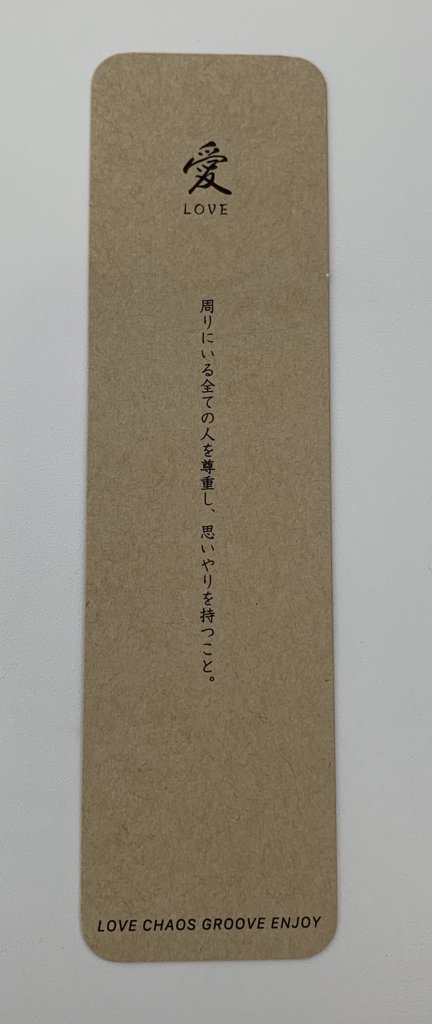 愛
LOVE
周りにいる全ての人を尊重し、思いやりを持つこと。
LOVE CHAOS GROOVE ENJOY